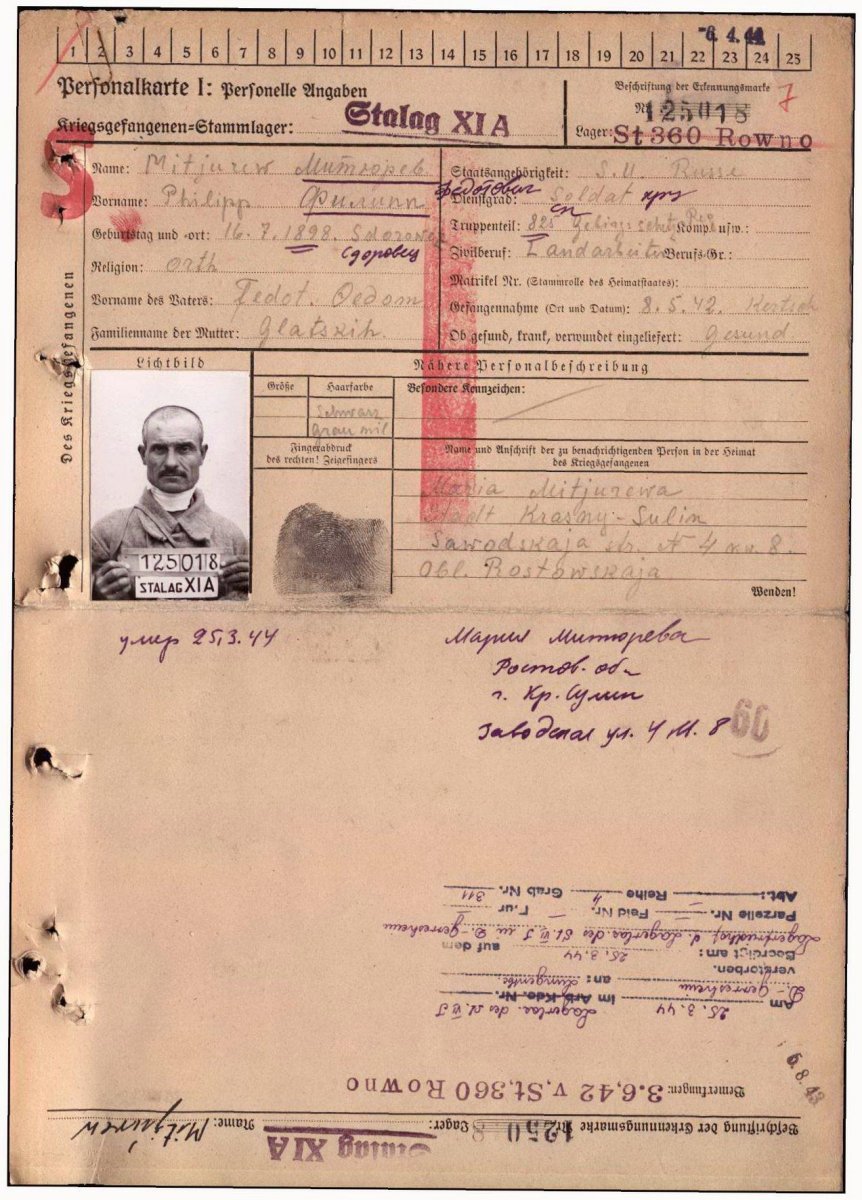 -6.4.44
1 2 3 4 5 6 7 8 9 10 11 12 13 14 15 16 17 18 19 20 21 22 23 24 25
Personalkarte I: Personelle Angaben
Beschriftung der Erkennungsmarke 7
Nr. 125018
Kriegsgefangenen=Stammlager: Stalag XIA
Lager: St 360 Rowno
S
Des Kriegsgefangenen
Name: Mitjurew Митюрев
Федотович
Vorname: Philipp Филипп
Geburtstag und =ort: 16.7.1898. Sdorowez
Сдоровец
Religion: orth
Vorname des Vaters: Fedot.
Familienname der Mutter: Glatskih.
Staatsangehörigkeit: S.U. Russe
Dienstgrad: Soldat
Truppenteil: 825 Komp. usw.:
сп
Zivilberuf: Landarbeiter Berufs=Gr.:
Matrikel Nr. (Stammrolle des Heimatstaates):
Gefangennahme (Ort und Datum): 8.5.42. Kertsch
Ob gesund, krank, verwundet eingeliefert: Gesund
Lichtbild
125018
STALAG XIA
Nähere Personalbeschreibung
Größe Haarfarbe Besondere Kennzeichen:
Schwarz
Fingerabdruck
des rechten! Zeigefingers
Name und Anschrift der zu benachrichtigenden Person in der Heimat
des Kriegsgefangenen
Maria Mitjurewa
Stadt Krasny-Sulin
Sawodskaja str. N 4 кв. 8.
Obl. Rostowskaja
Wenden!
умер 25.3.44
Мария Митюрева
Ростов. об
г. Кр. Сулин
Заводская ул. 4 М. 8
60
Beschriftung der Erkennungsmarke Nr. 1250 8 Lager: Stalag XIA Name: Mitjurew
Bemerkungen: 3.6.42 v. St. 360 Rowno
6.8.43
Am 25.3.44 im Arb. Kdo. Nr. Lagerlaz. des St. VI J
D.-Gerresheim an:
verstorben.
Beerdigt am: 25.3.44 auf dem
Lagerfriedhof d. Lagerlaz. des St. VI J in D.-Gerresheim
Parzelle Nr. — Feld Nr. — Flur
Abt.: — Reihe 4 Grab Nr. 311